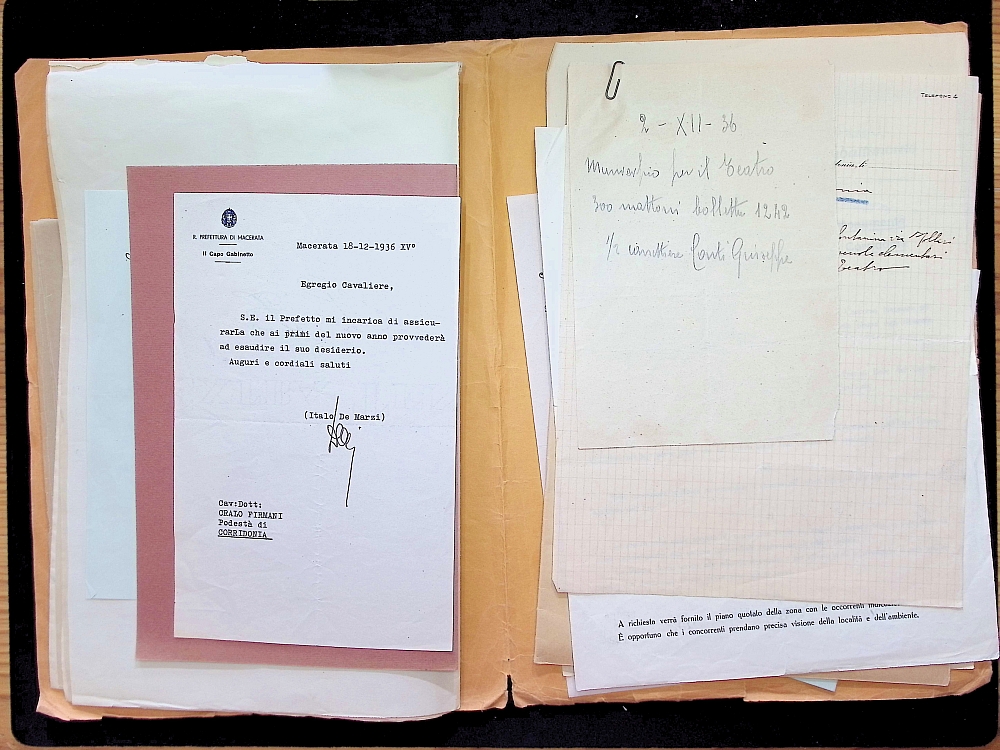 R. PREFETTURA DI MACERATA
Il Capo Gabinetto
Macerata 18-12-1936 XV°
Egregio Cavaliere,
S.E. il Prefetto mi incarica di assicu-
rarLa che ai primi del nuovo anno provvederà
ad esaudire il suo desiderio.
Auguri e cordiali saluti
(Italo De Marzi)
Cav:Dott:
CRALO FIRMANI
Podestà di
CORRIDONIA
2 - XII - 36
Municipio per il Teatro
300 mattoni bolletta 1242
1/2 carrettiere Conti Giuseppe
TELEFONO 4
elementari
Teatro
A richiesta verrà fornito il piano quotato della zona con le occorrenti
È opportuno che i concorrenti prendano precisa visione della località e dell'ambiente.